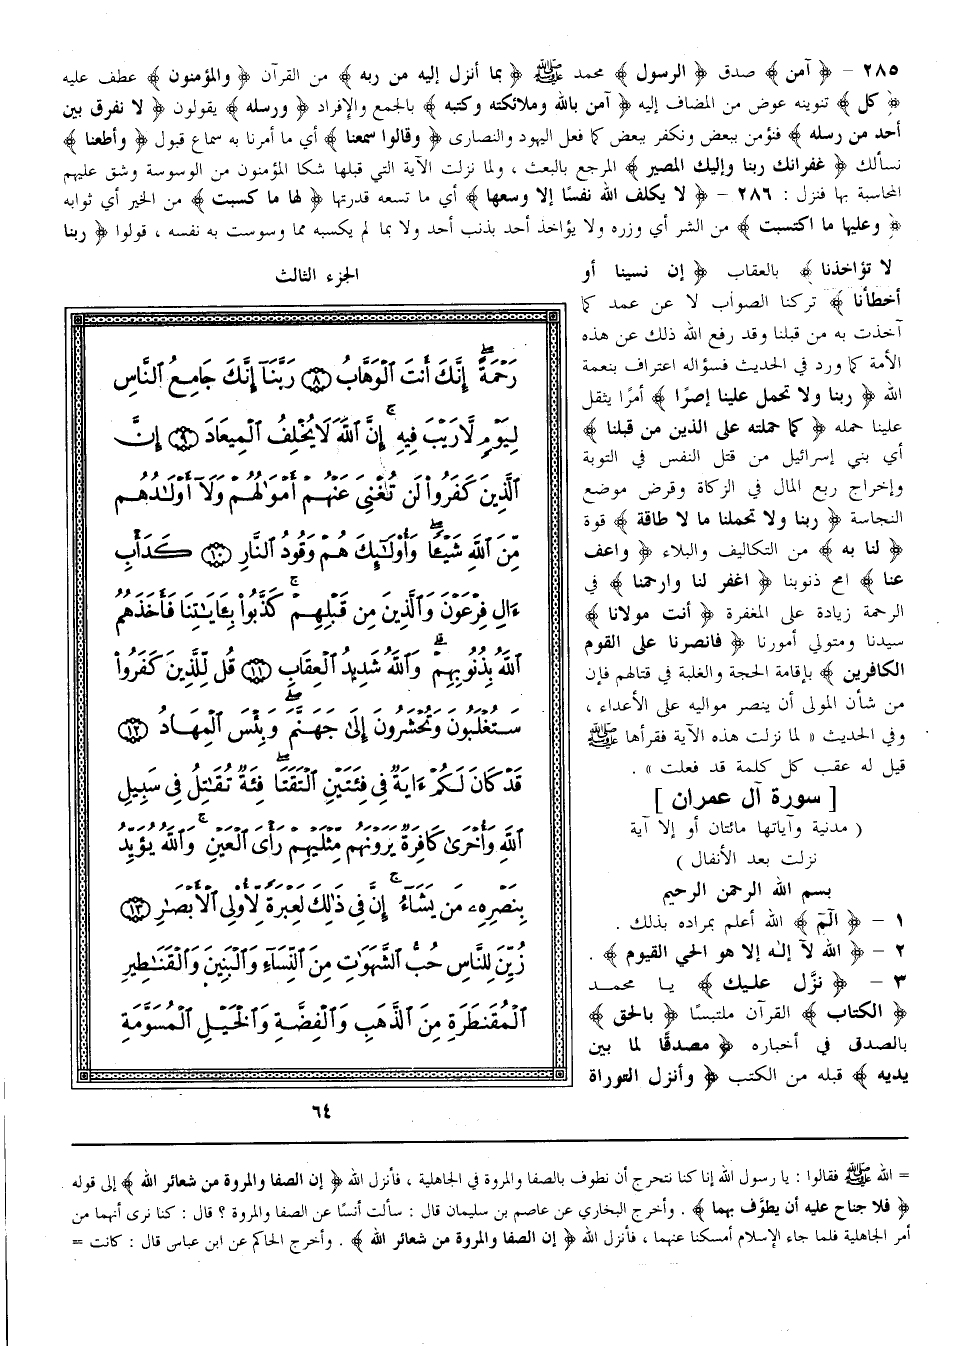 ٢٨٥ – ﴿ آمن ﴾ صدق ﴿ الرسول ﴾ محمد ﷺ ﴿ بما أنزل إليه من ربه ﴾ من القرآن ﴿ والمؤمنون ﴾ عطف عليه
﴿ كل ﴾ تنوينه عوض من المضاف إليه ﴿ آمن بالله وملائكته وكتبه ﴾ بالجمع والإفراد ﴿ ورسله ﴾ يقولون ﴿ لا نفرق بين
أحد من رسله ﴾ فنؤمن ببعض ونكفر ببعض كما فعل اليهود والنصارى ﴿ وقالوا سمعنا ﴾ أي ما أمرنا به سماع قبول ﴿ وأطعنا ﴾
نسألك ﴿ غفرانك ربنا وإليك المصير ﴾ المرجع بالبعث ، ولما نزلت الآية التي قبلها شكا المؤمنون من الوسوسة وشق عليهم
المحاسبة بها فنزل : ٢٨٦ – ﴿ لا يكلف الله نفسًا إلا وسعها ﴾ أي ما تسعه قدرتها ﴿ لها ما كسبت ﴾ من الخير أي ثوابه
﴿ وعليها ما اكتسبت ﴾ من الشر أي وزره ولا يؤاخذ أحد بذنب أحد ولا بما لم يكسبه مما وسوست به نفسه ، قولوا ﴿ ربنا
لا تؤاخذنا ﴾ بالعقاب ﴿ إن نسينا أو
أخطأنا ﴾ تركنا الصواب لا عن عمد كما
آخذت به من قبلنا وقد رفع الله ذلك عن هذه
الأمة كما ورد في الحديث فسؤاله اعتراف بنعمة
الله ﴿ ربنا ولا تحمل علينا إصرًا ﴾ أمرًا يثقل
علينا حمله ﴿ كما حملته على الذين من قبلنا ﴾
أي بني إسرائيل من قتل النفس في التوبة
وإخراج ربع المال في الزكاة وقرض موضع
النجاسة ﴿ ربنا ولا تحملنا ما لا طاقة ﴾ قوة
﴿ لنا به ﴾ من التكاليف والبلاء ﴿ واعف
عنا ﴾ امح ذنوبنا ﴿ اغفر لنا وارحمنا ﴾ في
الرحمة زيادة على المغفرة ﴿ أنت مولانا ﴾
سيدنا ومتولي أمورنا ﴿ فانصرنا على القوم
الكافرين ﴾ بإقامة الحجة والغلبة في قتالهم فإن
من شأن المولى أن ينصر مواليه على الأعداء ،
وفي الحديث « لما نزلت هذه الآية فقرأها ﷺ
قيل له عقب كل كلمة قد فعلت » .
[ سورة آل عمران ]
( مدنية وآياتها مائتان أو إلا آية
نزلت بعد الأنفال )
بسم الله الرحمن الرحيم
١ – ﴿ الٓمٓ ﴾ الله أعلم بمراده بذلك .
٢ – ﴿ الله لآ إلٰه إلا هو الحي القيوم ﴾ .
٣ – ﴿ نزَّل عليك ﴾ يا محمد
﴿ الكتاب ﴾ القرآن ملتبسًا ﴿ بالحق ﴾
بالصدق في أخباره ﴿ مصدقًا لما بين
يديه ﴾ قبله من الكتب ﴿ وأنزل التوراة
الجزء الثالث
رَحْمَةً ۚ إِنَّكَ أَنتَ ٱلْوَهَّابُ ٨ رَبَّنَآ إِنَّكَ جَامِعُ ٱلنَّاسِ
لِيَوْمٍ لَّا رَيْبَ فِيهِ ۚ إِنَّ ٱللَّهَ لَا يُخْلِفُ ٱلْمِيعَادَ ٩ إِنَّ
ٱلَّذِينَ كَفَرُوا۟ لَن تُغْنِىَ عَنْهُمْ أَمْوَٰلُهُمْ وَلَآ أَوْلَـٰدُهُم
مِّنَ ٱللَّهِ شَيْـًٔا ۖ وَأُو۟لَـٰٓئِكَ هُمْ وَقُودُ ٱلنَّارِ ١٠ كَدَأْبِ
ءَالِ فِرْعَوْنَ وَٱلَّذِينَ مِن قَبْلِهِمْ ۚ كَذَّبُوا۟ بِـَٔايَـٰتِنَا فَأَخَذَهُمُ
ٱللَّهُ بِذُنُوبِهِمْ ۗ وَٱللَّهُ شَدِيدُ ٱلْعِقَابِ ١١ قُل لِّلَّذِينَ كَفَرُوا۟
سَتُغْلَبُونَ وَتُحْشَرُونَ إِلَىٰ جَهَنَّمَ ۖ وَبِئْسَ ٱلْمِهَادُ ١٢
قَدْ كَانَ لَكُمْ ءَايَةٌ فِى فِئَتَيْنِ ٱلْتَقَتَا ۖ فِئَةٌ تُقَـٰتِلُ فِى سَبِيلِ
ٱللَّهِ وَأُخْرَىٰ كَافِرَةٌ يَرَوْنَهُم مِّثْلَيْهِمْ رَأْىَ ٱلْعَيْنِ ۚ وَٱللَّهُ يُؤَيِّدُ
بِنَصْرِهِۦ مَن يَشَآءُ ۚ إِنَّ فِى ذَٰلِكَ لَعِبْرَةً لِّأُو۟لِى ٱلْأَبْصَـٰرِ ١٣
زُيِّنَ لِلنَّاسِ حُبُّ ٱلشَّهَوَٰتِ مِنَ ٱلنِّسَآءِ وَٱلْبَنِينَ وَٱلْقَنَـٰطِيرِ
ٱلْمُقَنطَرَةِ مِنَ ٱلذَّهَبِ وَٱلْفِضَّةِ وَٱلْخَيْلِ ٱلْمُسَوَّمَةِ
٦٤
= الله ﷺ فقالوا : يا رسول الله إنا كنا نتحرج أن نطوف بالصفا والمروة في الجاهلية ، فأنزل الله ﴿ إن الصفا والمروة من شعائر الله ﴾ إلى قوله
﴿ فلا جناح عليه أن يطوَّف بهما ﴾ . وأخرج البخاري عن عاصم بن سليمان قال : سألت أنسًا عن الصفا والمروة ؟ قال : كنا نرى أنهما من
أمر الجاهلية فلما جاء الإسلام أمسكنا عنهما ، فأنزل الله ﴿ إن الصفا والمروة من شعائر الله ﴾ . وأخرج الحاكم عن ابن عباس قال : كانت =